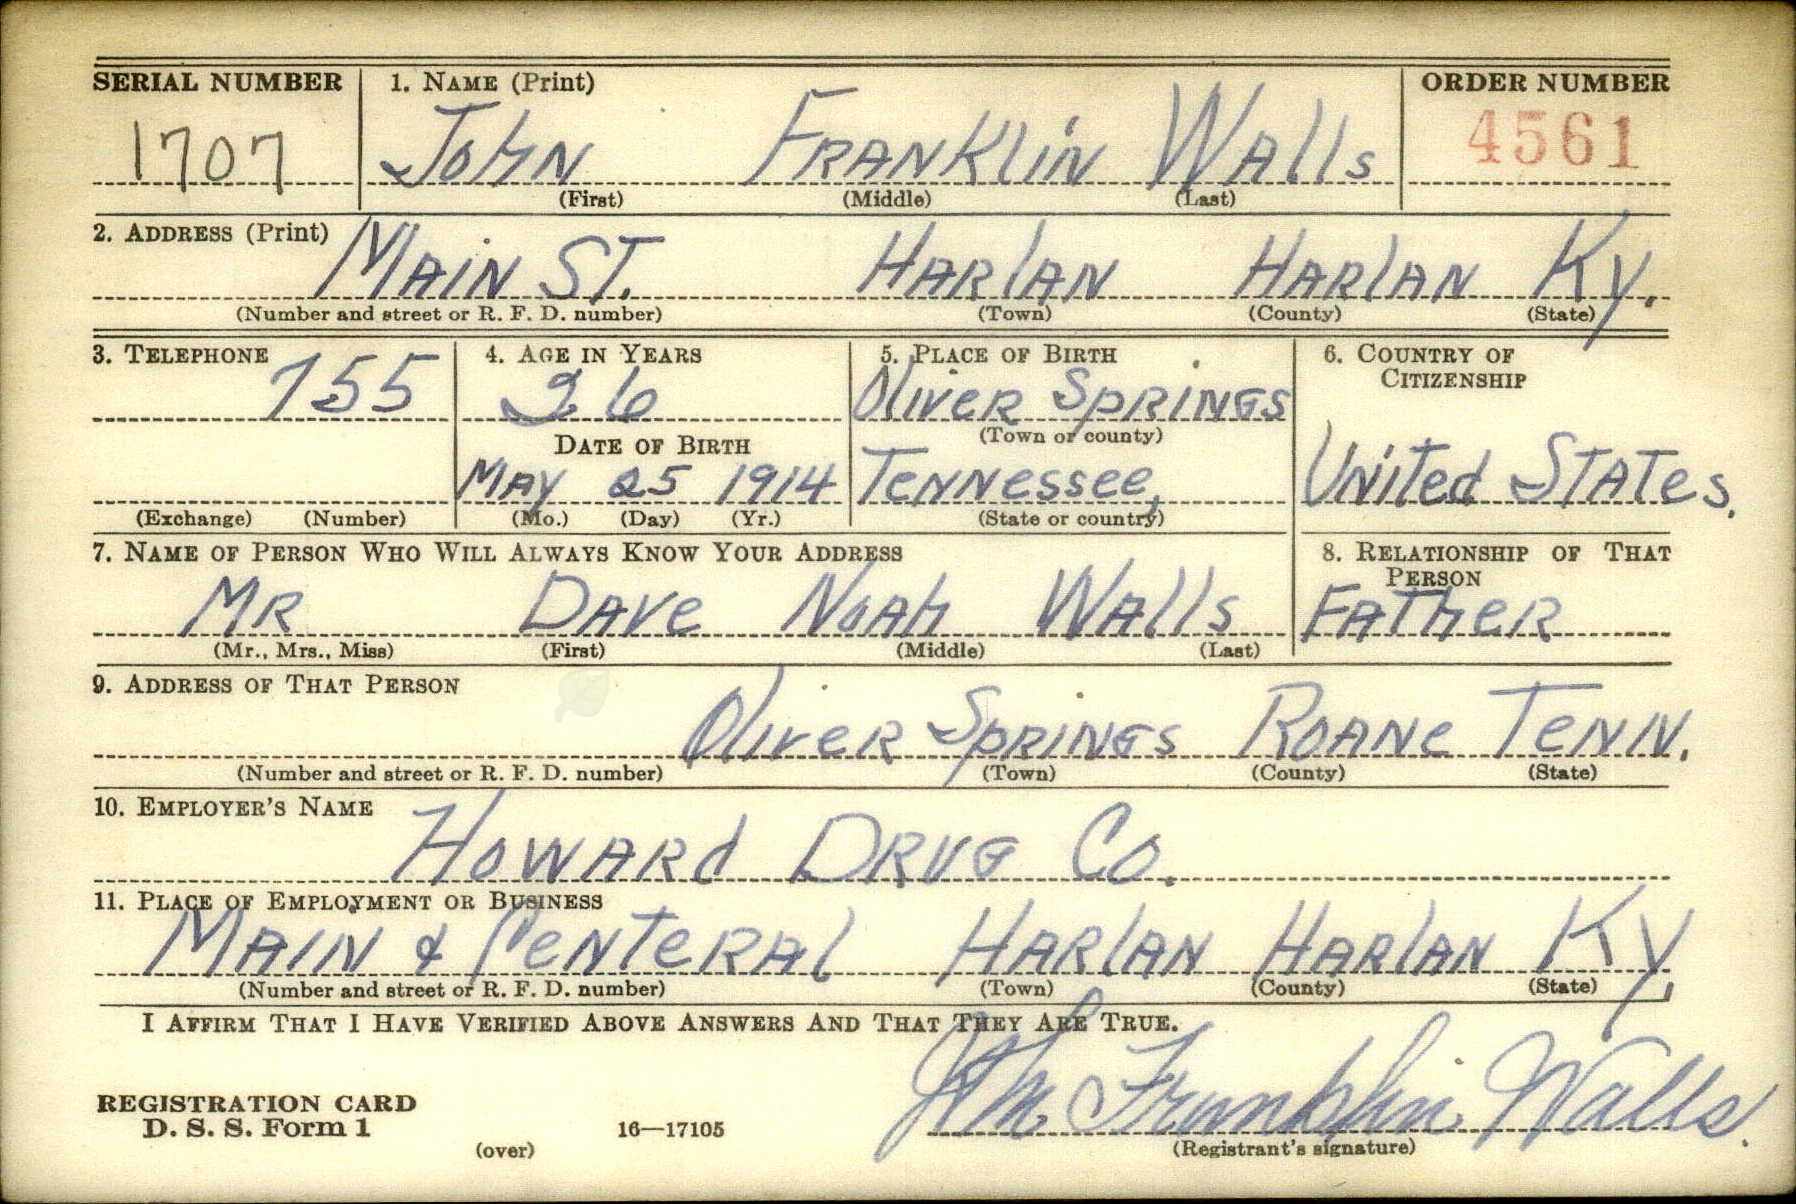 SERIAL NUMBER 1. NAME (Print) ORDER NUMBER
1707 John Franklin Walls 4561
(First) (Middle) (Last)
2. ADDRESS (Print)
Main St. Harlan Harlan Ky.
(Number and street or R. F. D. number) (Town) (County) (State)
3. TELEPHONE 4. AGE IN YEARS 5. PLACE OF BIRTH 6. COUNTRY OF CITIZENSHIP
755 26 Oliver Springs
DATE OF BIRTH (Town or county)
May 25 1914 Tennessee, United States.
(Exchange) (Number) (Mo.) (Day) (Yr.) (State or country)
7. NAME OF PERSON WHO WILL ALWAYS KNOW YOUR ADDRESS 8. RELATIONSHIP OF THAT PERSON
Mr Dave Noah Walls Father
(Mr., Mrs., Miss) (First) (Middle) (Last)
9. ADDRESS OF THAT PERSON
Oliver Springs Roane Tenn.
(Number and street or R. F. D. number) (Town) (County) (State)
10. EMPLOYER'S NAME
Howard Drug Co.
11. PLACE OF EMPLOYMENT OR BUSINESS
Main & Centeral Harlan Harlan Ky.
(Number and street or R. F. D. number) (Town) (County) (State)
I AFFIRM THAT I HAVE VERIFIED ABOVE ANSWERS AND THAT THEY ARE TRUE.
Franklin Walls.
REGISTRATION CARD
D. S. S. Form 1 16—17105
(over) (Registrant's signature)